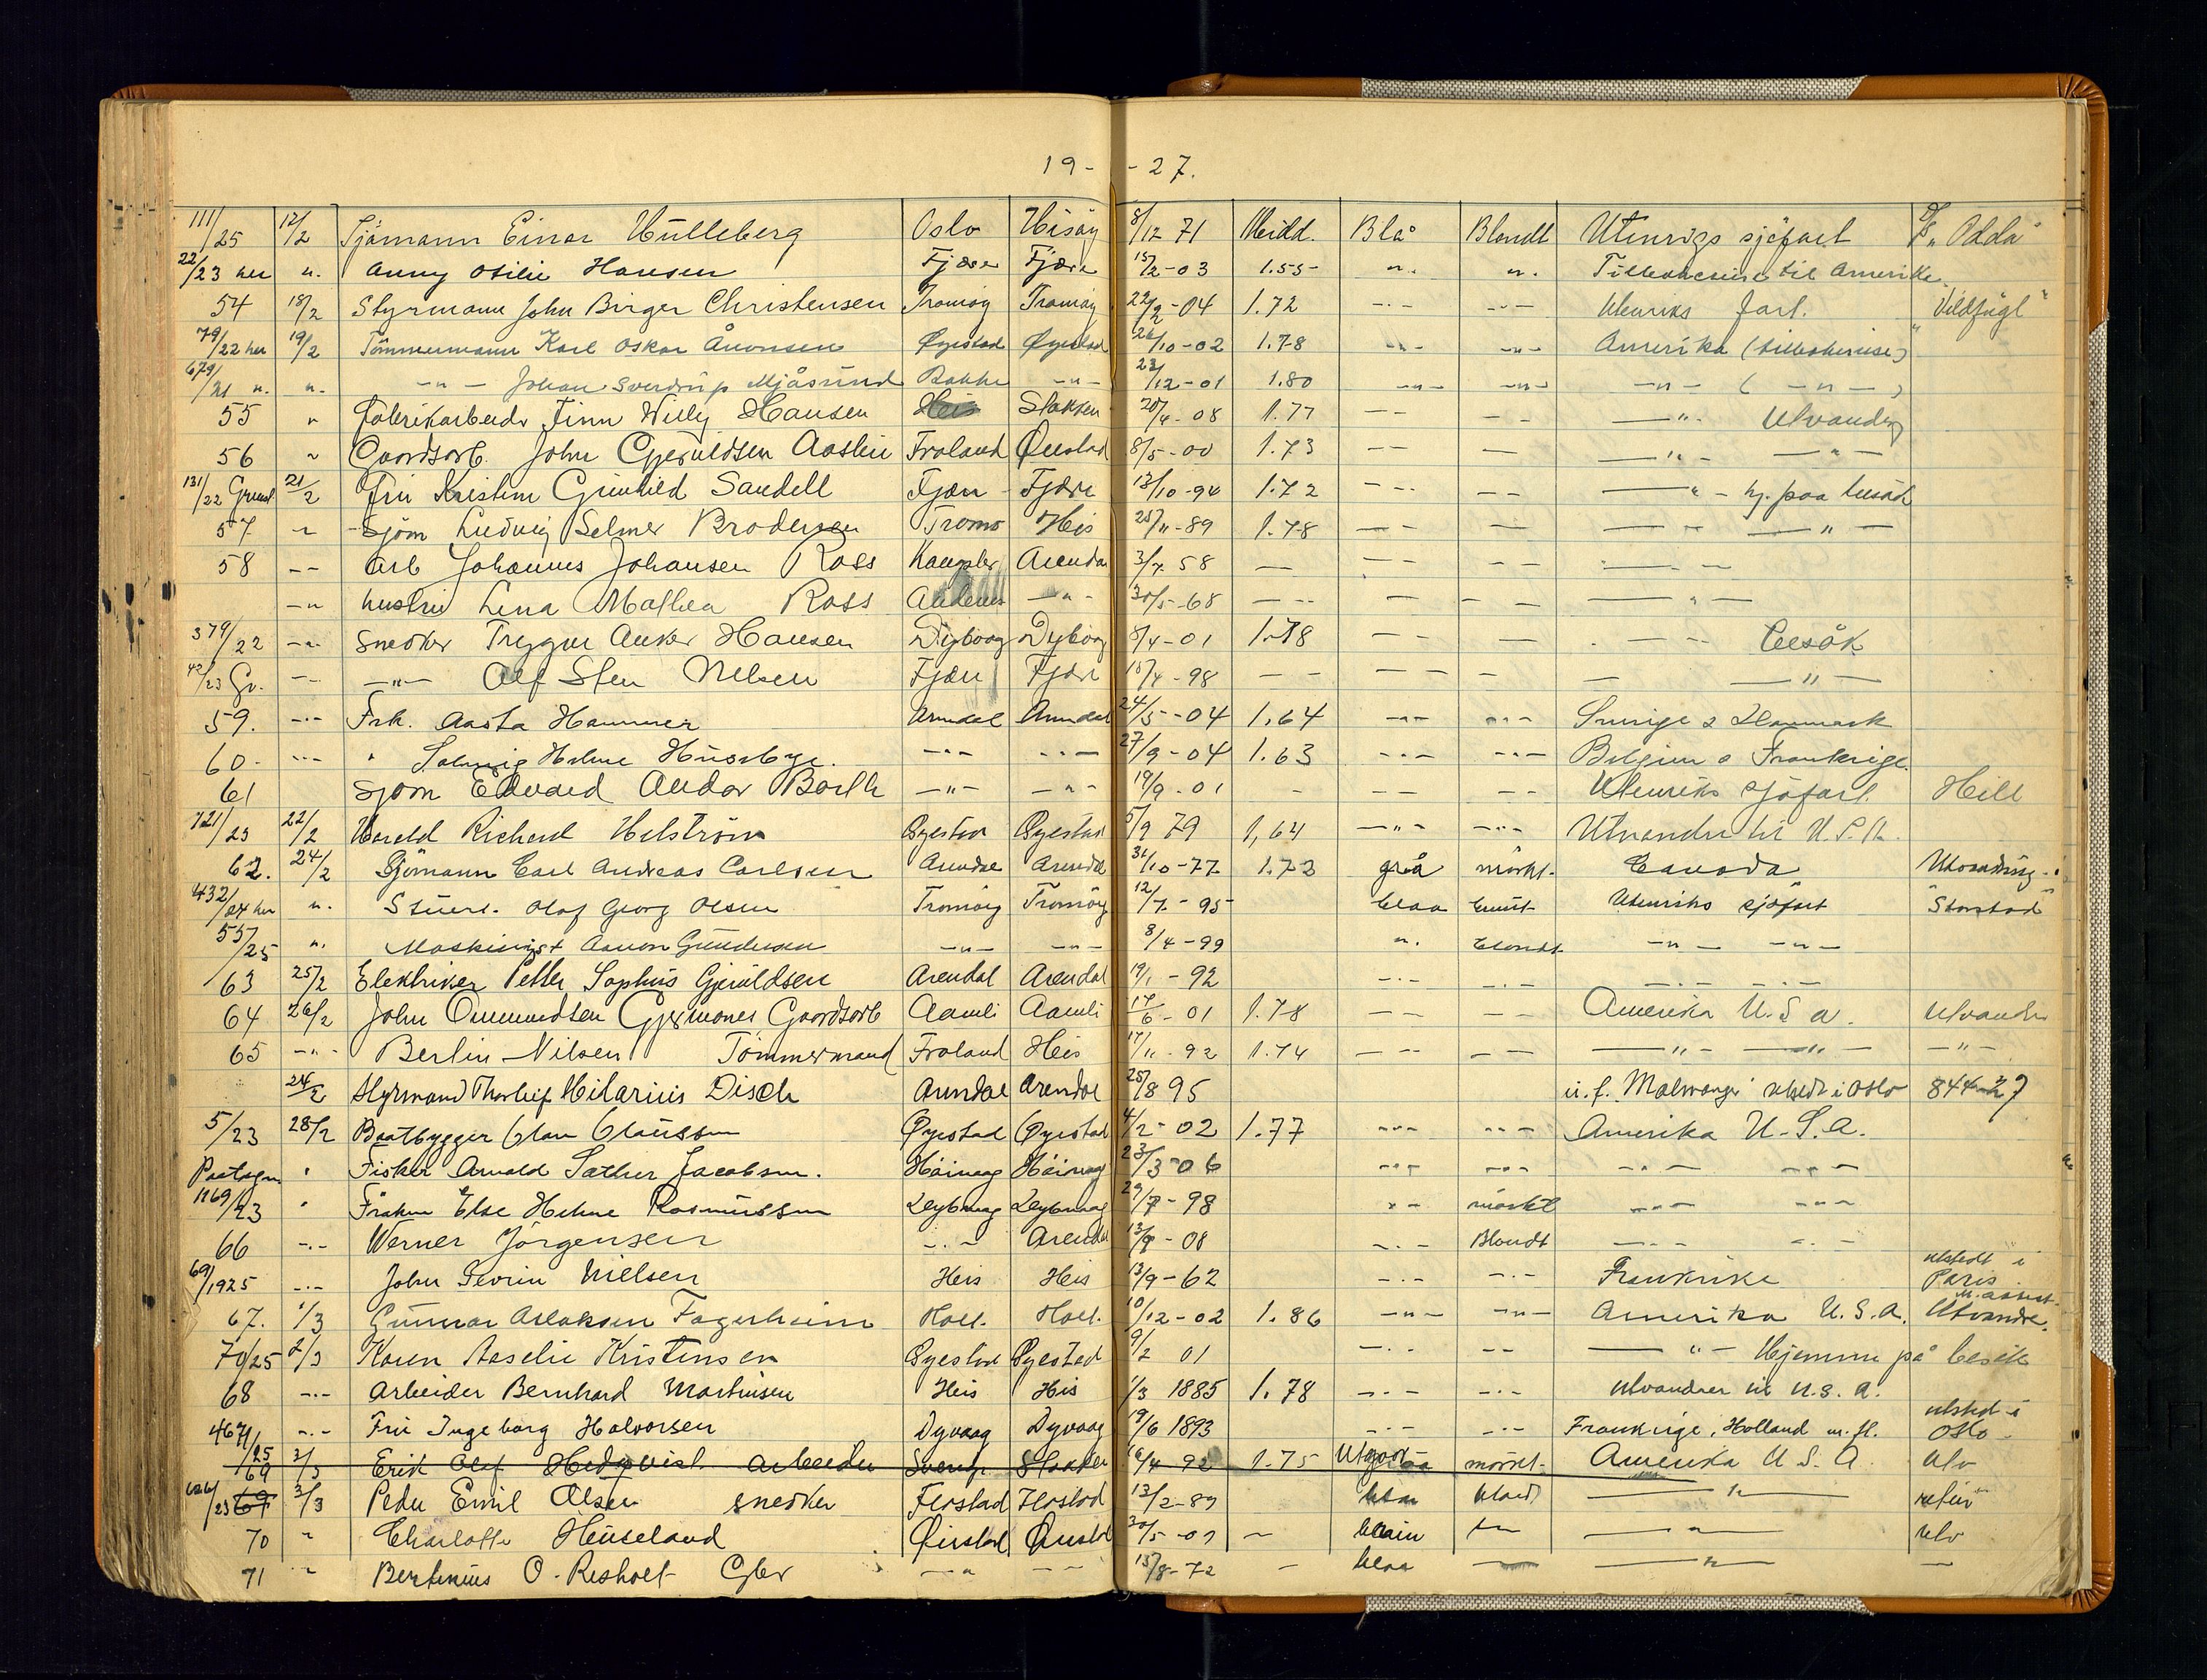 19- -27.
111/25 12/2 Sjömann Einar Hülleberg Oslo Hisöy 8/12 71 Midd. Blå Blondt Utenrigs sjöfart D/S "Odda"
22/23 her n. Anny Otilie Hansen Fjære Fjære 15/2-03 1.55 -"- -"- Tilbakereise til Amerika
54 18/2 Styrmann John Birger Christensen Tromöy Tromöy 22/2-04 1.72 -"- -"- Utenriks fart. "Vildfugl"
79/22 her 19/2 Tömmermann Karl Oskar Ånonsen Øyestad Øyestad 26/10-02 1.78 -"- -"- Amerika (tilbakereise)
679/21 n. n. -"- Johan Sverdrup Mjåsund Bakke -"- 23/12-01 1.80 -"- -"- -"- ( -"- )
55 " Fabrikarbeider Finn Willy Hansen Stokken 20/4-08 1.77 -- -- -"- Utvandrer
56 " Gaardsarb. John Gjeruldsen Aaslie Froland Öiestad 8/5-00 1.73 -- -- -"- -"-
131/22 Grimst 21/2 Fru Kristine Gunhild Sandell Fjære Fjære 13/10-94 1.72 -"- -- -"- hj. paa besøk
57 " Sjöm Ludvig Selmer Brodersen Tromö His 25/11-89 1.78 -- -- -"- -"-
58 -- Arb Johannes Johansen Ross Arendal 3/7 58 -- -- -- -"-
-" hustru Lena Mathea Ross -"- 30/5-68 -- -- -- -"-
379/22 -"- Snedker Trygve Anker Hansen Dybvaag Dybvaag 8/4-01 1.78 -- -- -"- besøk
42/23 Gr. -- -"- Alf Sten Nilsen Fjære Fjære 18/4-98 -- -- -- -"-
59. -"- Frk. Aasta Hammer Arendal Arendal 24/5-04 1.64 -"- -"- Sverige & Danmark
60. -"- " Solveig Helene Huseby -"- -"- 27/9-04 1.63 -"- -"- Belgien o Frankrige.
61 Sjöm Edvard Andor Barth -"- -"- 19/9-01 - -- -- Utenriks sjöfart. Hell
721/23 22/2 Harald Richard Helström Øyestad Øyestad 5/9 79 1,64 -"- -"- Utvandrer til U.S.A.
62. 24/2 Sjömann Carl Andreas Carlsen Arendal Arendal 31/10-77 1.73 grå mörkt. Canada
432/24 her n. Stuert. Olaf Georg Olsen Tromöy Tromöy 12/7-95 blaa brunt Utenriks sjöfart "Storstad"
557/25 n. Maskinist Aanon Gundersen -"- -"- 8/4-99 ". blondt -"- -"-
63 25/2 Elektriker Petter Sophus Gjeruldsen Arendal Arendal 19/1-92 -"- -"- -"- -"-
64 26/2 John Ommundsen Gjermones Gaardsarb Aamli Aamli 17/6-01 1.78 -- -- Amerika U.S.A. Utvandrer
65 -"- Berlin Nilsen Tömmermand Froland His 17/11-92 1.74 -- -- -"- -"- -"-
24/2 Styrmand Thorleif Hilarius Disch Arendal Arendal 25/8 95 u.f. "Malmanger" utstedt i Oslo 844-27
5/23 28/2 Baatbygger Olav Olaussen Øyestad Øyestad 4/2-02 1.77 -"- -"- Amerika U.S.A.
" Fisker Arnold Sæther Jacobsen. Höivaag Höivaag 23/3-06 -"- -"- -"- -"-
1169/23 " Fröken Else Helene Rasmussen Dybvaag Dybvaag 29/7-98 -"- mörkt -"- -"-
66 -"- Werner Jörgensen -"- Arendal 13/9-08 -"- Blondt -"- -"-
69/1925 -"- John Severin Nielsen His His 13/9-62 -"- -"- Frankrike utstedt i Paris.
67. 1/3 Gunnar Aslaksen Fagerheim Holt. Holt. 10/12-02 1.86 -"- -"- Amerika U.S.A. Utvandre.
70/25 2/3 Karen Aaselie Kristensen Øyestad Øyestad 9/2 01 -"- -- -"- Hjemme på besök
68 -"- Arbeider Bernhard Martinsen His His 1/3 1885 1.78 -"- -"- Utvandrer til U.S.A.
467/25 -"- Fru Ingeborg Halvorsen Dyvaag Dyvaag 19/6 1893 -"- -"- Frankrige, Holland m.fl. utsted i Oslo
69 3/3 Erik Olaf Hedqvist arbeider Sverige Stokken 16/4 92 1.75 Utgaar mörkt. Amerika U.S.A. utv
626/23 69 3/3 Peder Emil Olsen snedker Flostad Flostad 13/2-89 blaa blond -"- retur
70 " Charlotte Heuseland Öiestad Öiestad 30/5-07 - brun -"- -"- utv
71 " Bertinius O. Resholt Gbr -"- -- 15/8-72 - blaa -"- -"- -